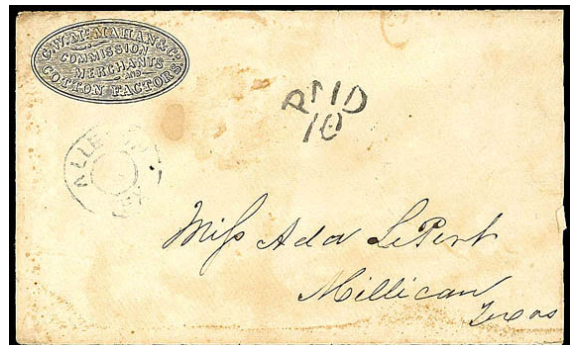 C.W. McMAHAN & Co.
COMMISSION
MERCHANTS
AND
COTTON FACTORS.
PAID
10
Miss Ada
Millican
Texas